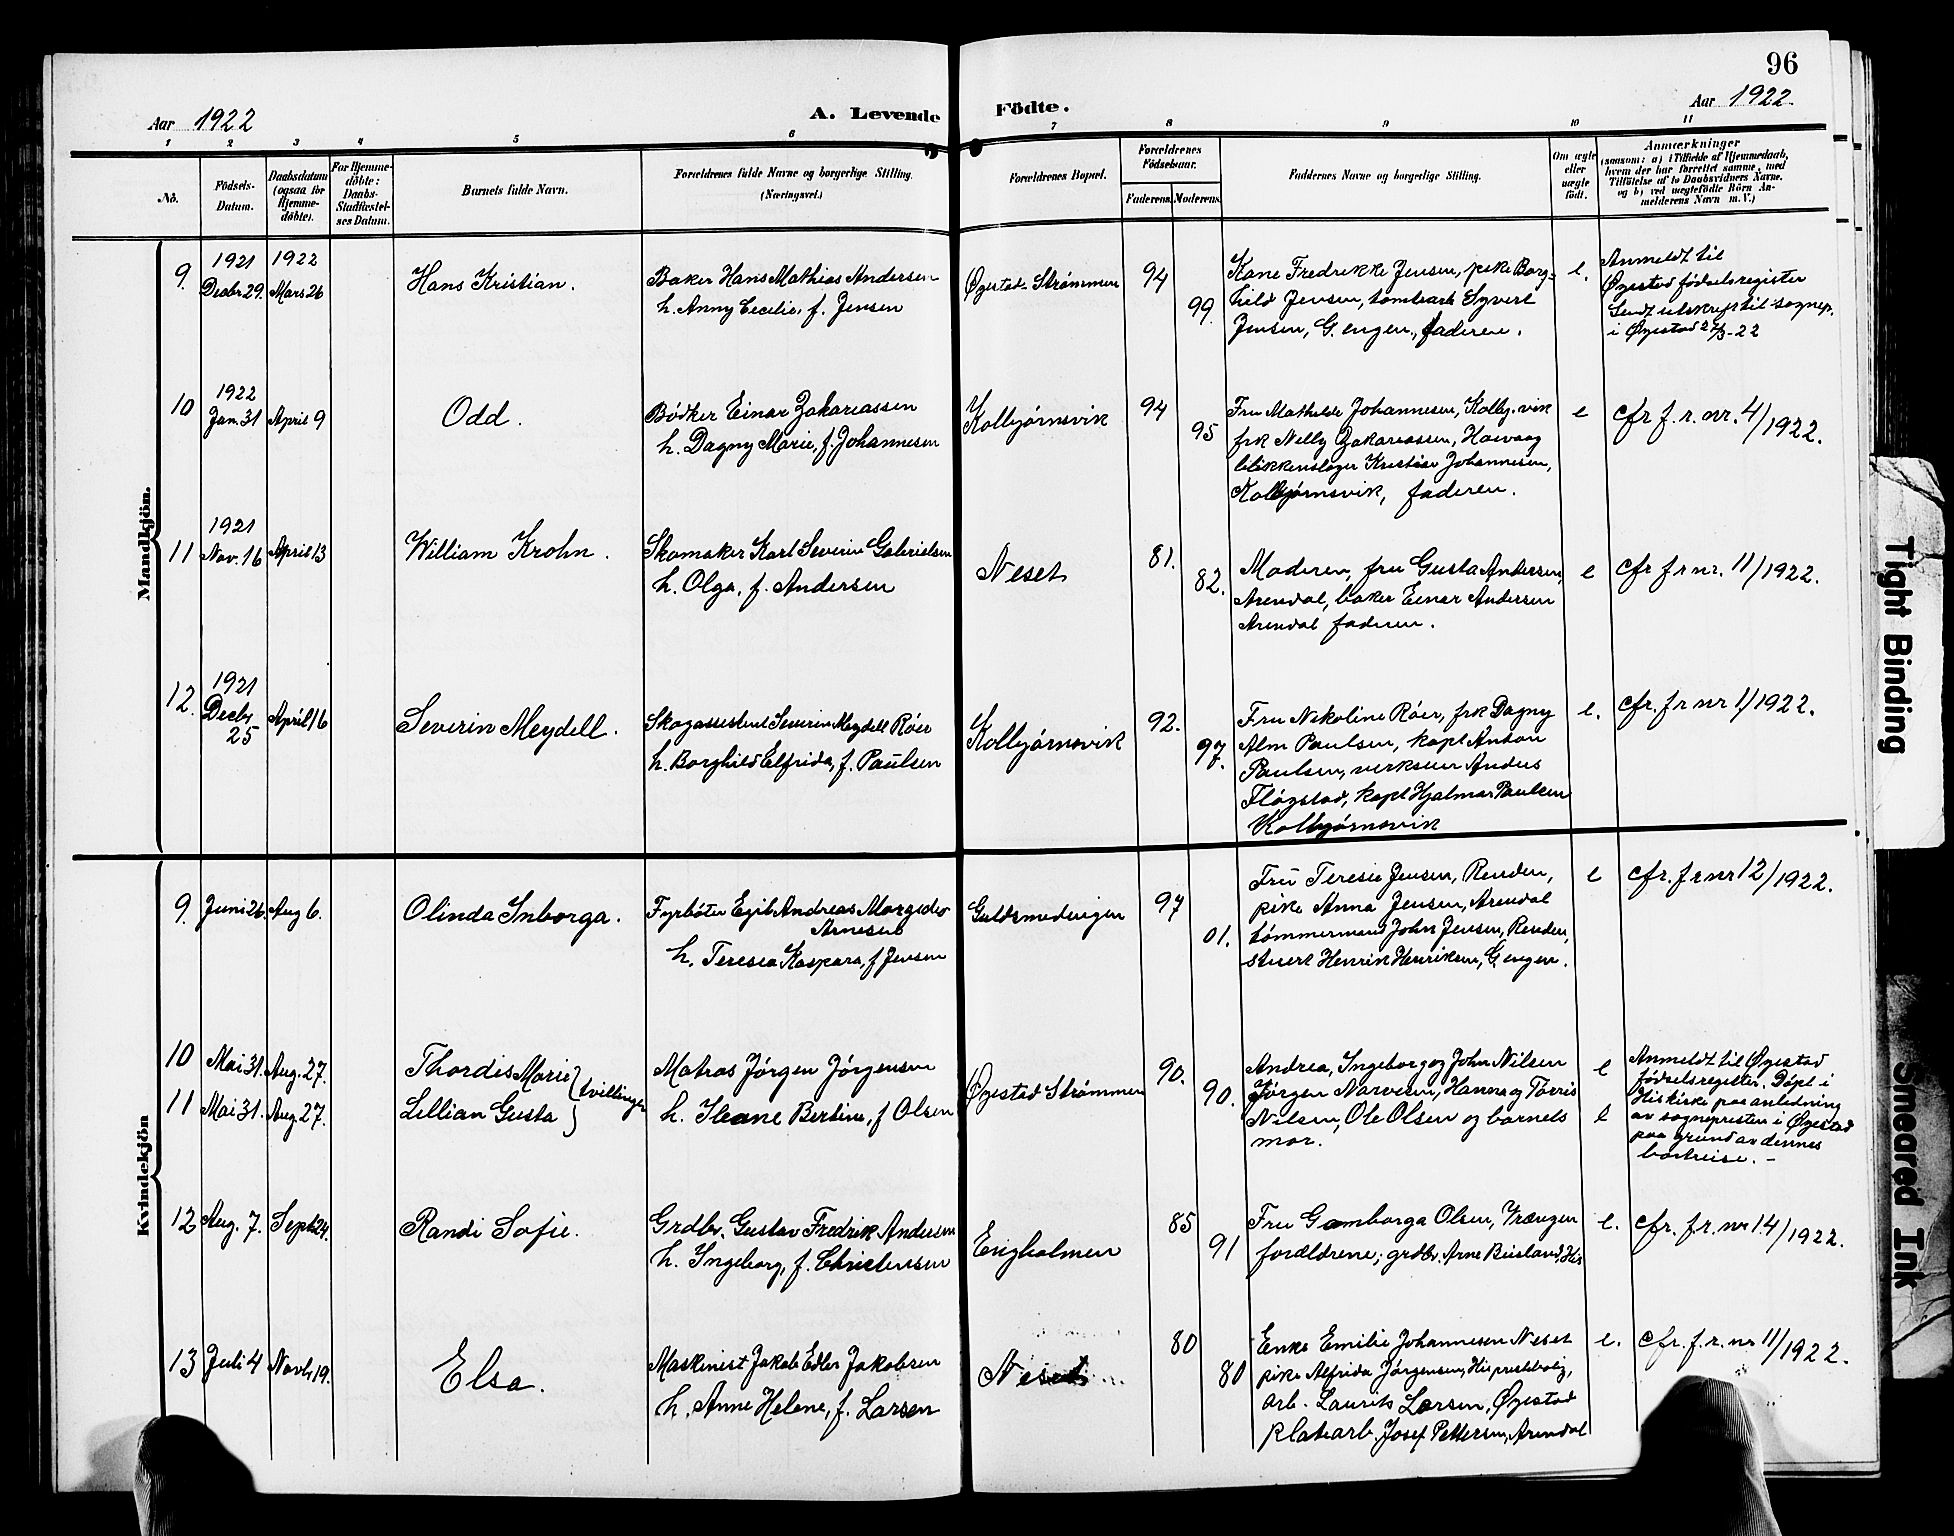 96
Aar 1922
A. Levende Födte.
Aar 1922.
1 2 3 4 5 6 7 8 9 10 11
No.
Födsels-Datum.
Daabsdatum (ogsaa for Hjemme-döbte).
For Hjemme-döbte: Daabs-Stadfæstel-ses Datum.
Barnets fulde Navn.
Forældrenes fulde Navne og borgerlige Stilling.
(Næringsvei.)
Forældrenes Bopæl.
Forældrenes Födselsaar.
Faderens. Moderens.
Faddernes Navne og borgerlige Stilling.
Om ægte eller uægte födt.
Anmærkninger
(saasom: a) i Tilfælde af Hjemmedaab,
hvem der har forrettet samme, med
Tilföielse af to Daabsvidners Navne.
og b) ved uægtefödte Börn An-
melderens Navn m. V.)
Mandkjön.
9. 1921 Decbr 29. 1922 Mars 26
Hans Kristian.
Baker Hans Mathias Andersen
h. Anny Cecilie, f. Jensen
Øyestad-Strømmen
94
99.
Kone Fredrikke Jensen, pike Borg-
hild Jensen, tømbark Syvert
Jensen, G. engen., faderen.
e.
Anmeldt til
Øyestad fødselsregister
Sendt utskrept til sognep.
i Øyestad 27/3-22
10 1922 Jan. 31 April 9
Odd.
Bødker Einar Zakariassen
h. Dagny Marie, f. Johannesen
Kolbjørnsvik
94
95
Fru Mathilde Johannesen, Kolbj.vik
frk Nelly Zakariassen, Haevaag
blikkenslager Kristian Johannesen,
Kolbjørnsvik, faderen.
e
cfr f. r. nr. 4/1922.
11 1921 Nov. 16 April 13
William Krohn.
Skomaker Karl Severin Gabrielsen
h. Olga, f. Andersen
Neset
81.
82.
Moderen, fru Gusta Andersen,
Arendal, baker Einar Andersen
Arendal faderen.
e
cfr f r nr. 11/1922.
12. 1921 Decbr 25 April 16
Severin Meydell.
Skogassistent Severin Meydell Røer
h. Borghild Elfrida, f. Paulsen
Kolbjørnsvik
92.
97.
Fru Nikoline Røer, frk Dagny
Alm Paulsen, kapt Anton
Paulsen, verkseier Anders
Fløgstad, kapt Hjalmar Paulsen
Kolbjørnsvik
e.
cfr. f r nr 1/1922.
Kvindekjön
9. Juni 26. Aug 6.
Olinda Inborga.
Fyrbøter Egil Andreas Margido
Arnesen
h. Teresia Kaspara, f Jensen
Guldsmedengen
97
01.
Fru Teresie Jensen, Renden,
pike Anna Jensen, Arendal
tømmermand John Jensen, Renden,
stuert Henrik Henriksen, G. engen.
e
cfr. f r nr 12/1922.
10 Mai 31. Aug. 27.
11 Mai 31. Aug. 27.
Thordis Marie
Lillian Gusta } tvillinger
Matros Jørgen Jørgensen
h. Ileane Bertine, f Olsen
Øyestad Strømmen
90.
90.
Andrea, Ingeborg og John Nilsen
Jørgen Narvesen, Hanna og Tørris
Nilsen, Ole Olsen og barnets
mor.
e
e
Anmeldt til Øyestad
fødselsregister. Døpt i
Hiskirke paa anledning
av sognepresten i Øyestad
paa grund av dennes
bortreise. -
12 Aug. 7. Sept 24.
Randi Sofie.
Grdbr. Gustav Fredrik Andersen
h. Ingeborg, f. Christensen
Engholmen
85
91
Fru Gamborga Olsen, Vrængen
forældrene; grdbr. Arne Busland, His
e.
cfr. f. r. nr 14/1922.
13 Juli 4 Novb 19.
Elsa.
Maskinist Jakob Edler Jakobsen
h. Anne Helene, f. Larsen
Neset
80
80
Enke Emilie Johannesen Neset
pike Alfrida Jørgensen, His prestebolig,
arb. Laurits Larsen, Øyestad
platearb. Josef Pettersen, Arendal
e.
cfr. f. r. nr 11/1922.
Tight Binding
Smeared Ink